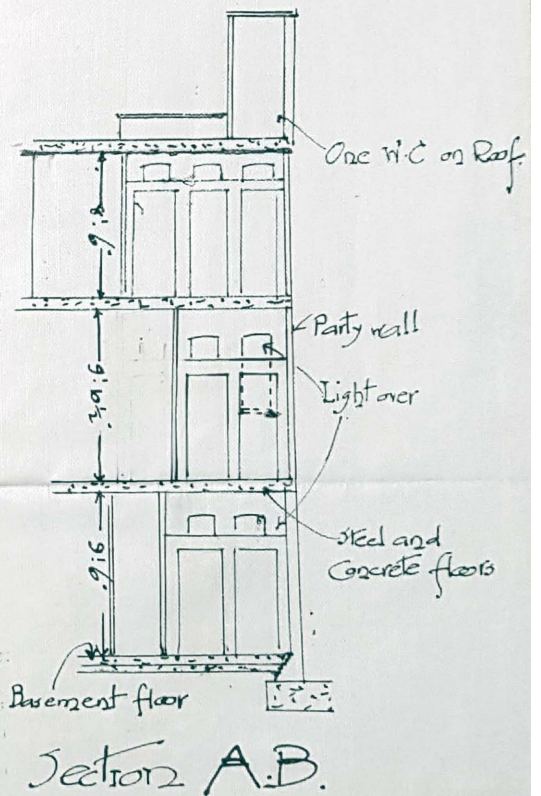 One W.C on Roof.
Party wall
Light over
Steel and
Concrete floors
9:6
Basement floor
Section A.B.